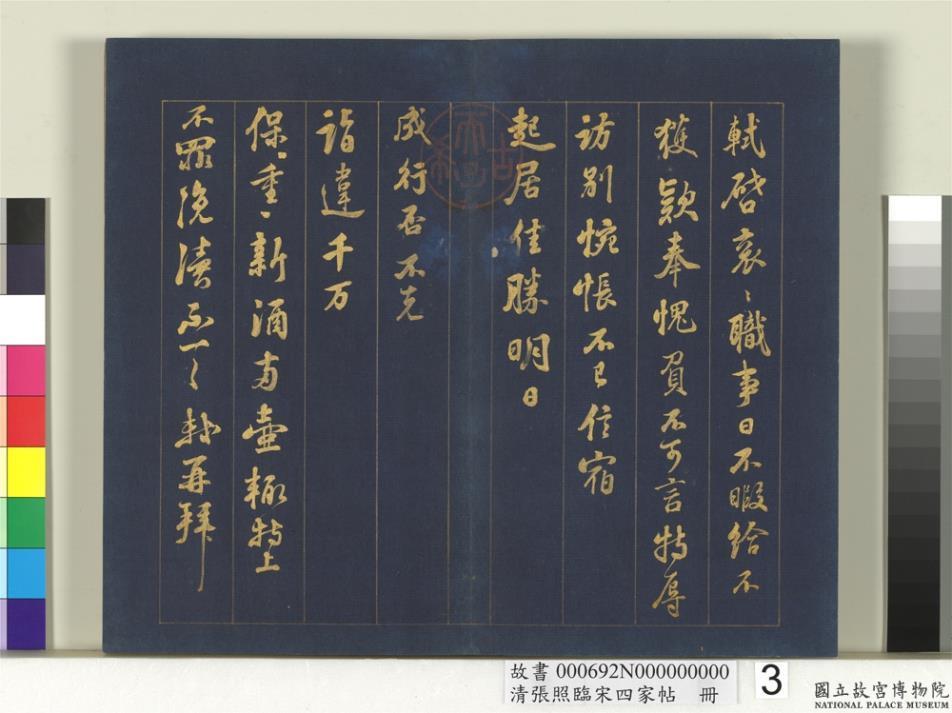 軾啓衰〻職事日不暇給不
獲款奉愧負不可言特辱
訪別惋悵不已信宿
起居佳勝明日
成行否不克
詣違千万
保〻重〻新酒两壺輙持上
不罪浼瀆不一〻軾再拜
故書 000692N000000000
清張照臨宋四家帖 冊
3
國立故宮博物院
NATIONAL PALACE MUSEUM